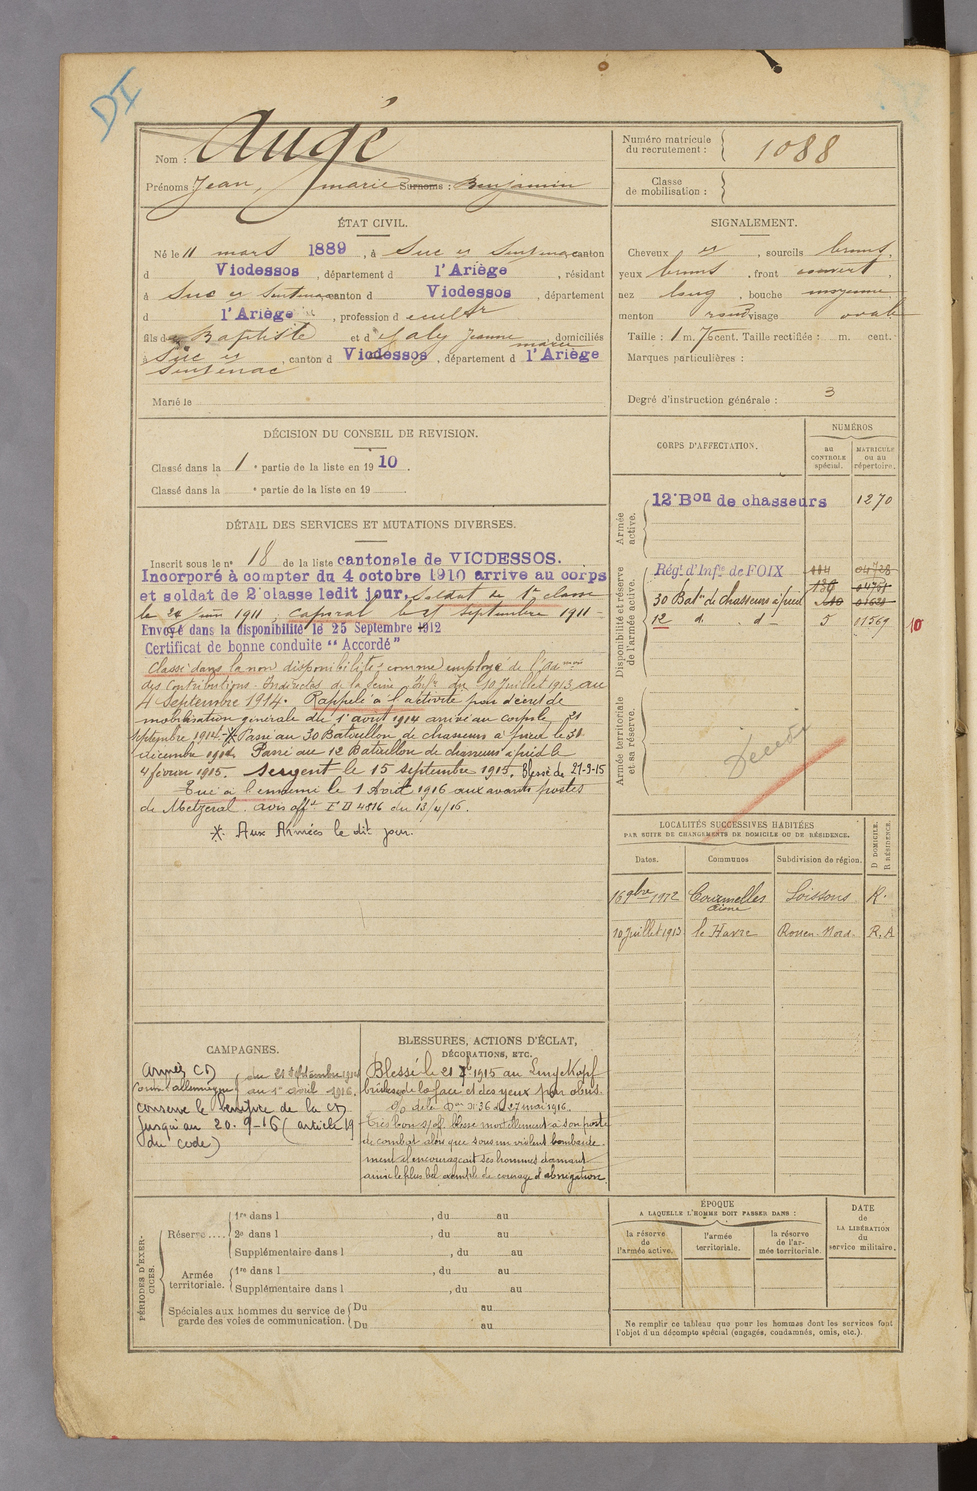 DI
Nom : Augé
Prénoms Jean, marie Surnoms : Benjamin
Numéro matricule
du recrutement : 1088
Classe
de mobilisation :
ÉTAT CIVIL.
Né le 11 mars 1889, à Suc et Sentenac canton
d Vicdessos, département d l'Ariège, résidant
à Suc et Sentenac canton d Vicdessos, département
d l'Ariège, profession d cultr
fils de Baptiste et d Galy Jeanne marie, domiciliés
à Suc et Sentenac, canton d Vicdessos, département d l'Ariège
Marié le
SIGNALEMENT.
Cheveux et, sourcils bruns,
yeux bruns, front couvert,
nez long, bouche moyenne,
menton rond visage ovale
Taille : 1 m. 76 cent. Taille rectifiée : m. cent.
Marques particulières :
Degré d'instruction générale : 3
DÉCISION DU CONSEIL DE REVISION.
Classé dans la 1e partie de la liste en 1910.
Classé dans la e partie de la liste en 19
CORPS D'AFFECTATION.
NUMÉROS
au
CONTROLE
spécial.
MATRICULE
ou au
répertoire.
Armée
active.
12e Bon de chasseurs 1270
Disponibilité et réserve
de l'armée active.
Régt d'Infie de FOIX
30 Baton de chasseurs à pied
12 d. d- 5 01569
10
Armée territoriale
et sa réserve.
Décédé
DÉTAIL DES SERVICES ET MUTATIONS DIVERSES.
Inscrit sous le n° 18 de la liste cantonale de VICDESSOS.
Incorporé à compter du 4 octobre 1910 arrive au corps
et soldat de 2e classe ledit jour. Soldat de 1re classe
le 24 juin 1911, caporal le 25 septembre 1911-
Envoyé dans la disponibilité le 25 Septembre 1912
Certificat de bonne conduite “ Accordé ”
Classé dans la non disponibilité comme employé de l'admon
des Contributions Indirectes de la Seine Infre du 10 Juillet 1913 au
4 septembre 1914. Rappelé à l'activité par décret de
mobilisation générale du 1er août 1914 arrivé au corps le 21
septembre 1914.* Passé au 30 Bataillon de chasseurs à pied le 31
décembre 1914. Passé au 12 Bataillon de chasseurs à pied le
4 février 1915. Sergent le 15 septembre 1915. Blessé le 21-9-15
Tué à l'ennemi le 1 Août 1916 aux avants postes
de Metzeral. avis offel
*. Aux Armées le dit jour.
LOCALITÉS SUCCESSIVES HABITÉES
PAR SUITE DE CHANGEMENTS DE DOMICILE OU DE RÉSIDENCE.
Dates. Communes Subdivision de région. D DOMICILE. R RÉSIDENCE.
16 9bre 1912 Courmelles Aisne Soissons R.
10 Juillet 1913 le Havre Rouen-Nord. R.A
CAMPAGNES.
Armées CD du 21 Septembre 1914
contre l'allemagne au 1er Avril 1916.
conserve le bénéfice de la CD
jusqu'au 20-9-16 (article 19
du Code)
BLESSURES, ACTIONS D'ÉCLAT,
DÉCORATIONS, ETC.
Blessé le 21 1915 au Lingekopf
brûlures de la face et des yeux par obus.
27 mai 1916.
Très bon s/off. blessé mortellement à son poste
de combat alors que sous un violent bombarde-
ment il encourageait ses hommes donnant
ainsi le plus bel exemple de courage et d'abnégation.
PÉRIODES D'EXER-
CICES.
Réserve .... 1re dans l, du au
2e dans l, du au
Supplémentaire dans l, du au
Armée
territoriale. 1re dans l, du au
Supplémentaire dans l, du au
Spéciales aux hommes du service de
garde des voies de communication. Du au
Du au
ÉPOQUE
A LAQUELLE L'HOMME DOIT PASSER DANS :
la réserve
de
l'armée active.
l'armée
territoriale.
la réserve
de l'ar-
mée territoriale.
DATE
de
LA LIBÉRATION
du
service militaire.
Ne remplir ce tableau que pour les hommes dont les services font
l'objet d'un décompte spécial (engagés, condamnés, omis, etc.).